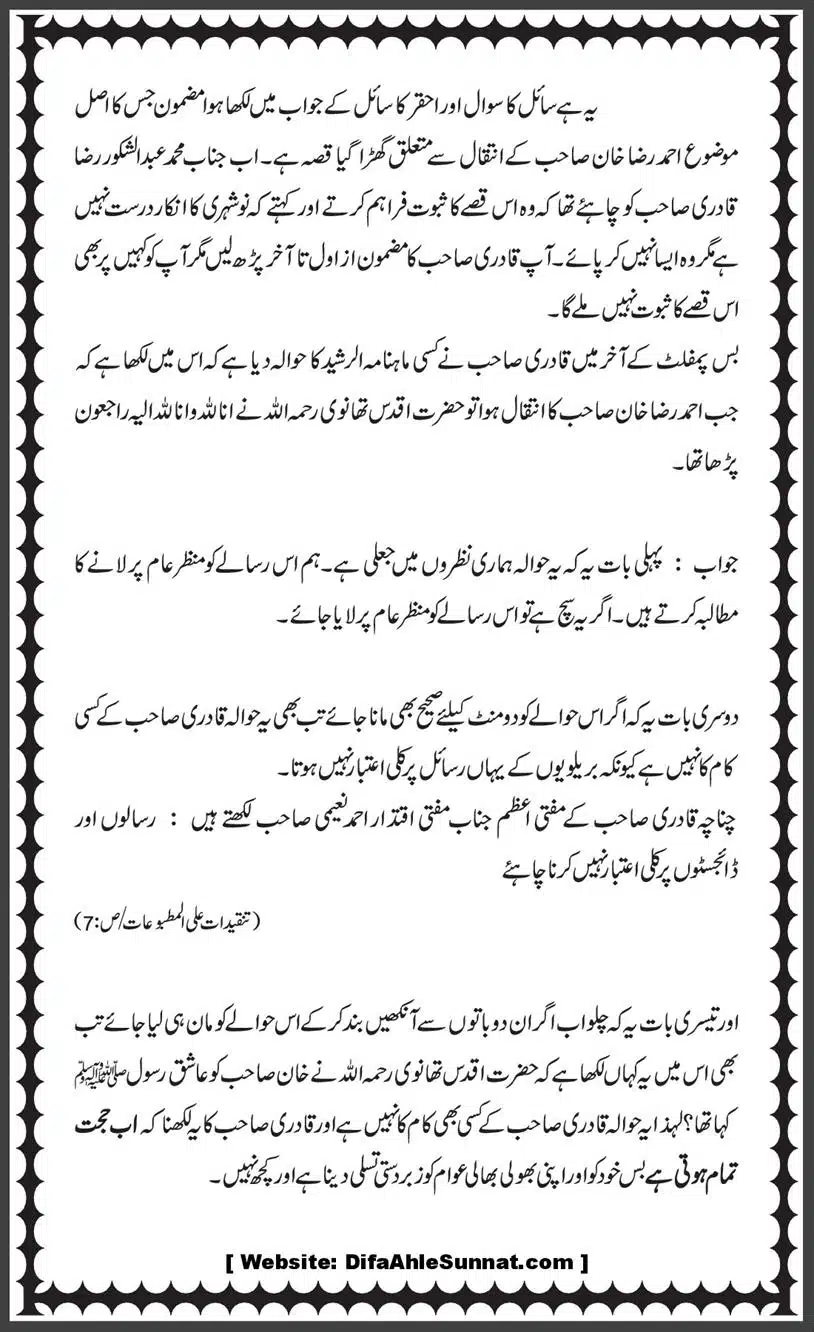 یہ ہے سائل کا سوال اور احقر کا سائل کے جواب میں لکھا ہوا مضمون جس کا اصل
موضوع احمد رضا خان صاحب کے انتقال سے متعلق گھڑا گیا قصہ ہے۔ اب جناب محمد عبدالشکور رضا
قادری صاحب کو چاہئے تھا کہ وہ اس قصے کا ثبوت فراہم کرتے اور کہتے کہ نوشہری کا انکار درست نہیں
ہے مگر وہ ایسا نہیں کر پائے۔ آپ قادری صاحب کا مضمون از اول تا آخر پڑھ لیں مگر آپ کو کہیں پر بھی
اس قصے کا ثبوت نہیں ملے گا۔
بس پمفلٹ کے آخر میں قادری صاحب نے کسی ماہنامہ الرشید کا حوالہ دیا ہے کہ اس میں لکھا ہے کہ
جب احمد رضا خان صاحب کا انتقال ہوا تو حضرت اقدس تھانوی رحمہ اللہ نے انا للہ وانا للہ الیہ راجعون
پڑھا تھا۔
جواب : پہلی بات یہ کہ یہ حوالہ ہماری نظروں میں جعلی ہے۔ ہم اس رسالے کو منظر عام پر لانے کا
مطالبہ کرتے ہیں۔ اگر یہ سچ ہے تو اس رسالے کو منظر عام پر لایا جائے۔
دوسری بات یہ کہ اگر اس حوالے کو دو منٹ کیلئے صحیح بھی مانا جائے تب بھی یہ حوالہ قادری صاحب کے کسی
کام کا نہیں ہے کیونکہ بریلویوں کے یہاں رسائل پر کلی اعتبار نہیں ہوتا۔
چناچہ قادری صاحب کے مفتی اعظم جناب مفتی اقتدار احمد نعیمی صاحب لکھتے ہیں : رسالوں اور
ڈائجسٹوں پر کلی اعتبار نہیں کرنا چاہئے
(تنقیدات علی المطبوعات/ص:7)
اور تیسری بات یہ کہ چلو اب اگر ان دو باتوں سے آنکھیں بند کر کے اس حوالے کو مان ہی لیا جائے تب
بھی اس میں یہ کہاں لکھا ہے کہ حضرت اقدس تھانوی رحمہ اللہ نے خان صاحب کو عاشق رسول ﷺ
کہا تھا؟ لہذا یہ حوالہ قادری صاحب کے کسی بھی کام کا نہیں ہے اور قادری صاحب کا یہ لکھنا کہ اب حجت
تمام ہوتی ہے بس خود کو اور اپنی بھولی بھالی عوام کو زبردستی تسلی دینا ہے اور کچھ نہیں۔
[ Website: DifaAhleSunnat.com ]